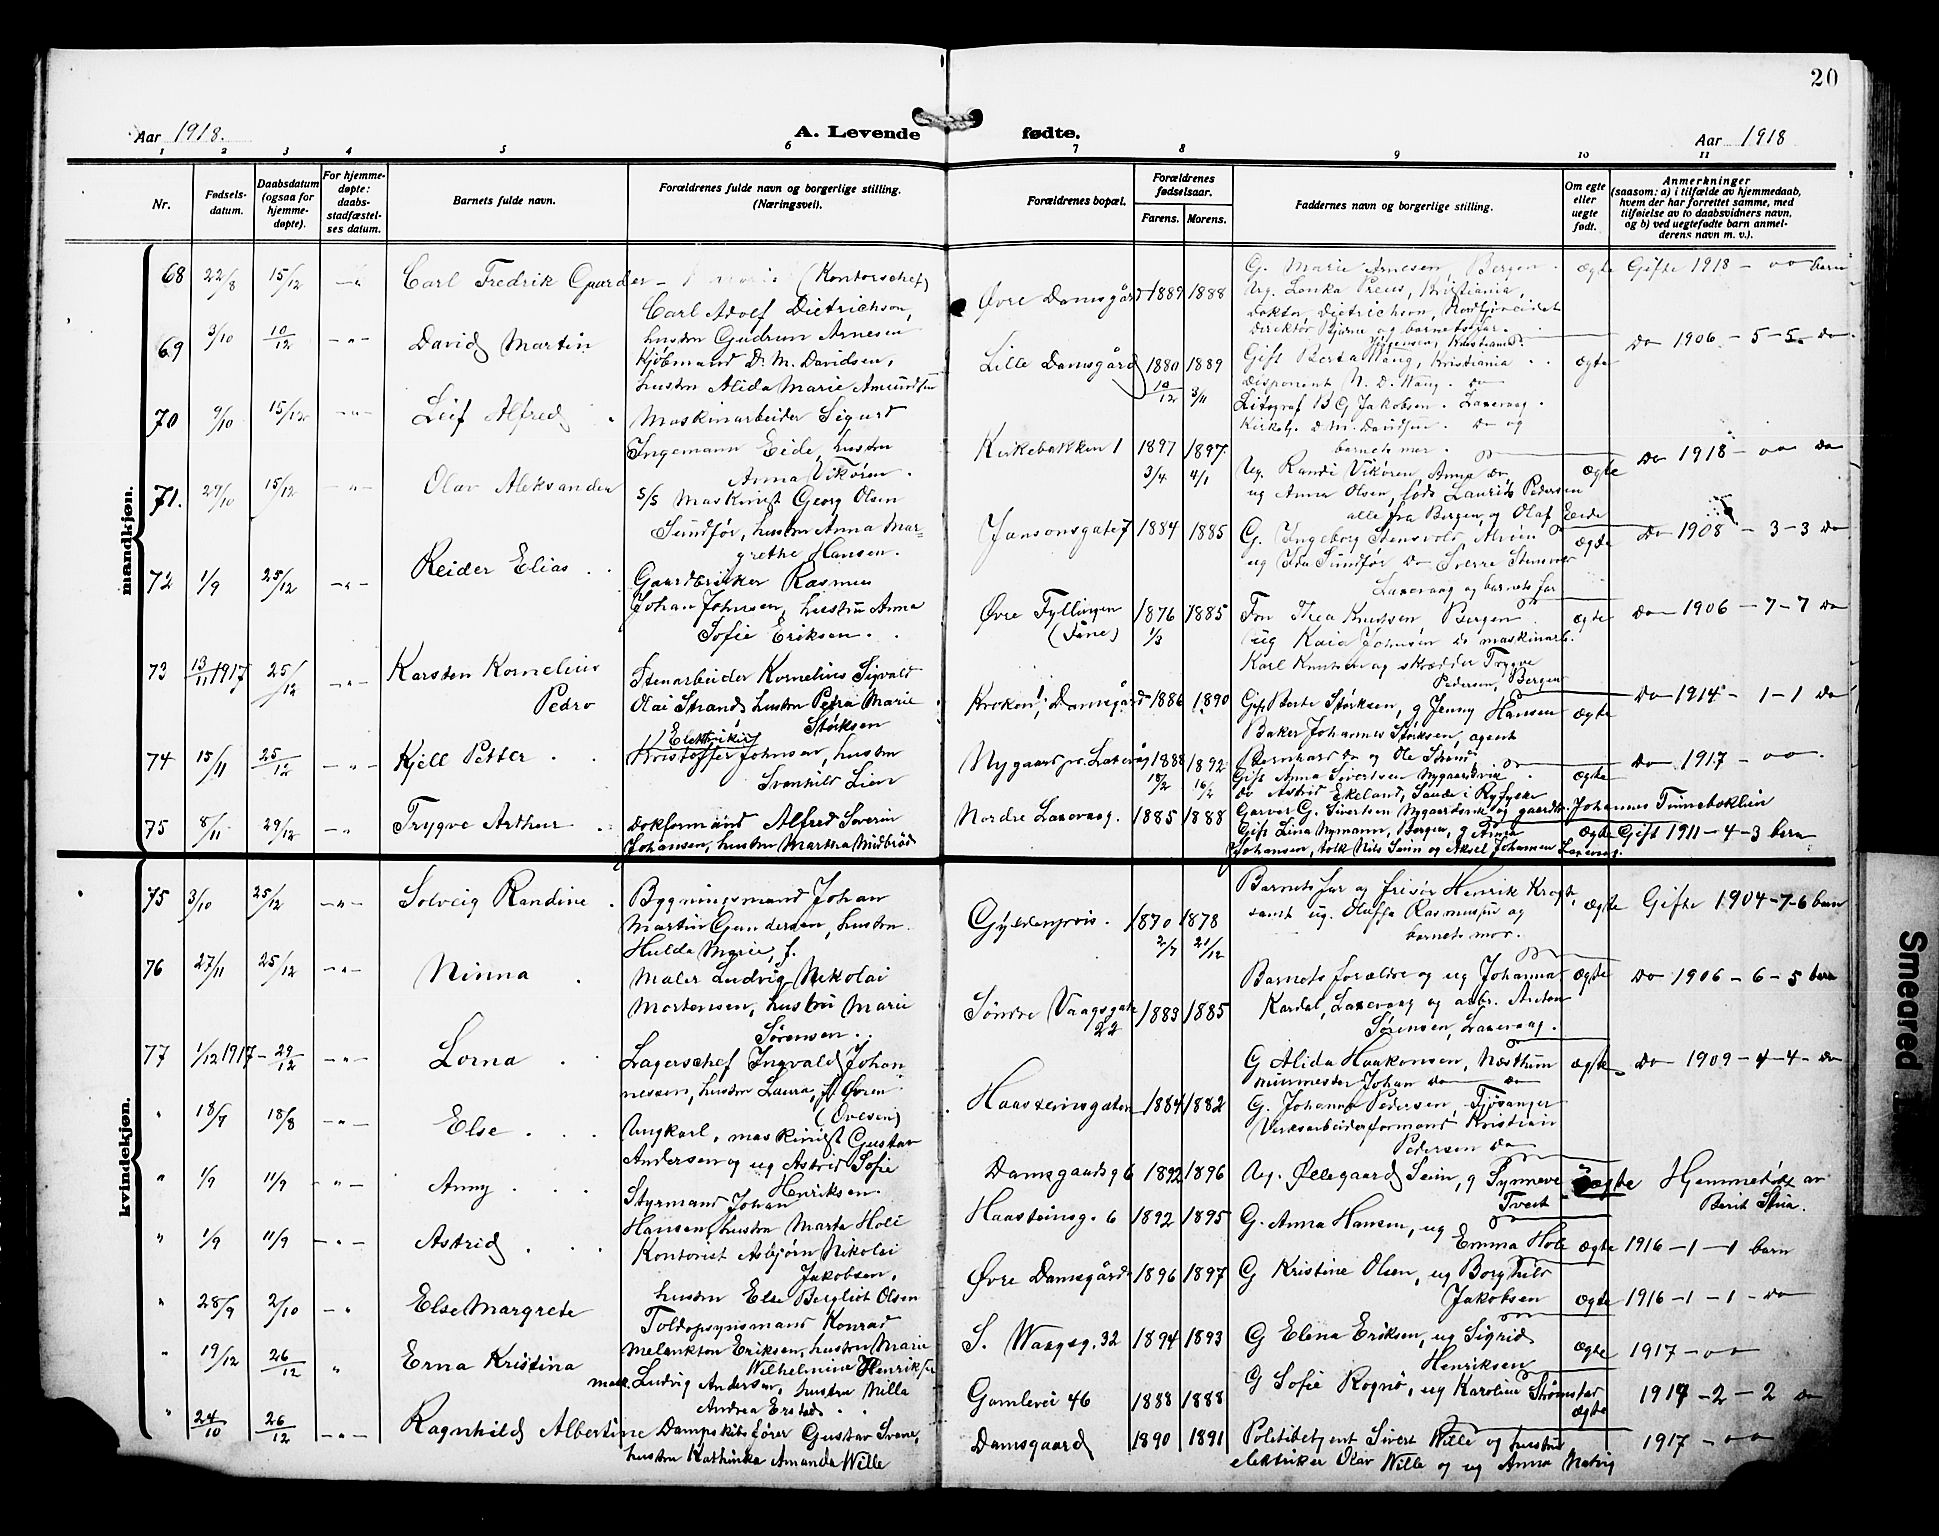 20
Aar 1918.
A. Levende fødte.
Aar 1918
1 2 3 4 5 6 7 8 9 10 11
Nr.
Fødsels-
datum.
Daabsdatum
(ogsaa for
hjemme-
døpte).
For hjemme-
døpte:
daabs-
stadfæstel-
ses datum.
Barnets fulde navn.
Forældrenes fulde navn og borgerlige stilling.
(Næringsvei).
Forældrenes bopæl.
Forældrenes
fødselsaar.
Farens. Morens.
Faddernes navn og borgerlige stilling.
Om egte
eller
uegte
født.
Anmerkninger
(saasom: a) i tilfælde av hjemmedaab,
hvem der har forrettet samme, med
tilføielse av to daabsvidners navn,
og b) ved uegtefødte barn anmel-
derens navn m. v.).
mandkjøn.
68 22/8 15/12 -"- Carl Fredrik Gaarder (Kontorschef)
Carl Adolf Dietrichson,
hustru Gudrun Arnesen
Øvre Damsgård 1889 1888
G. Marie Arnesen, Bergen.
Ug. Lonka Preus, Kristiania,
Doktor Dietrichson, Nordfjordeidet
Direktør Bjarne og barnets far.
Jørgensen, Kristiania
ægte Gifte 1918 - oo barn
69 3/10 10/12 -"- David Martin
Kjøbmand D. M. Davidsen,
hustru Alida Marie Amundsen
Lille Damsgård 1880 1889
10/12 3/11
Gift Berta Wang, Kristiania
Disponent N. D. Wang. do
Litograf B G Jakobsen. Laxevaag.
D. M. Davidsen. Do og
barnets mor.
ægte Do 1906 - 5 - 5 Do
70 9/10 15/12 -"- Leif Alfred
Maskinarbeider Sigurd
Ingemann Eide, hustru
Anna Vikøren.
Kirkebakken 1 1897 1897
3/4 4/1
Ug. Randi Vikøren, Anna do
ug Anna Olsen, Laurits Pedersen
alle fra Bergen, og Olaf Eide
ægte Do 1918 - oo Do
71. 29/10 15/12 -"- Olav Aleksander
S/S Maskinist Georg Olsen
Sundfør, hustru Anna Mar-
grethe Hansen.
Jansonsgate 7 1884 1885
G. Ingeborg Stensvold,
ug Ida Sundfør Do Sverre
Laxevaag og barnets far
ægte Do 1908 - 3 - 3 Do
72 1/9 25/12 -"- Reider Elias
Gaardbruker Rasmus
Johan Johnsen, hustru Anna
Sofie Eriksen.
Øvre Fyllingen
(Fane) 1876 1885
1/3
Frn Thea Knutsen Bergen
ug Kaia Johnsen do maskinarb.
Karl Knutsen og skrædder Trygve
Pedersen, Bergen
ægte Do 1906 - 7 - 7 Do
73 13/11 1917 25/12 -"- Karsten Kornelius
Pedro
Stenarbeider Kornelius Sigvald
Olai Strand, hustru Petra Marie
Størksen
Kroken 1, Damsgård 1886 1890
Gift Berte Størksen, g Jenny Hansen
Baker Johannes Størksen, agent
Bernhard Do og Ole Strøm
ægte Do 1914 - 1 - 1 Do
74 15/11 25/12 -"- Kjell Petter
Elektriker
Kristoffer Johnsen, hustru
Svanhild Lien
Nygaard pr. Laxevåg 1888 1892
18/2 16/2
Gift Anna Sivertsen Nygaardsvik
Do Astrid Ekeland, Sande i Ryfylke
Garver G. Sivertsen Nygaardsvik og gaardbr. Johannes Tunneboklien
ægte Do 1917 - oo
75 8/11 29/12 -"- Trygve Arthur
Dokformand Alfred Severin
Johansen, hustru Martha Midbrød
Nordre Laxevaag. 1885 1888
Gift Lina Nymann, Bergen, g Anna
Johansen, tolk Nils Seim og Aksel Johansen Laxevaag.
ægte Gift 1911 - 4 - 3 barn
kvindekjøn.
75 3/10 25/12 -"- Solveig Randine
Bygningsmand Johan
Martin Gundersen, hustru
Hulda Marie, f.
Gyldenpris. 1870 1878
2/7 21/12
Barnets far og frisør Henrik Krogh,
samt ug. Oluffa Rasmussen og
barnets mor.
ægte Gifte 1904 - 7 - 6 barn
76 27/11 25/12 -"- Ninna
Maler Ludvig Nikolai
Mortensen, hustru Marie
Sørensen.
Søndre Vaagsgate
22 1883 1885
Barnets forældre og ug Johanna
Kardal, Laxevaag og arbr. Anton
Sørensen, Laxevaag.
ægte Do 1906 - 6 - 5 barn
77 1/12 1917 - 29/12 -"- Lorna
Lagerschef Ingvald Johan-
nessen, hustru Laura, f. Øvren
(Ovesen)
Haasteinsgaten 1884 1882
G Alida Haakonsen, Næsttun
Murmester Johan do do
G. Johanna Pedersen, Fjøsanger
Verksarbeiderformand Kristian
Pedersen do
ægte Do 1909 - 4 - 4 - Do
" 18/7 18/8 -"- Else
Ungkarl, maskinist Gustav
Andersen og ug Astrid Sofie
Henriksen.
Damsgaardsg 6 1892 1896
Ug. Øllegaard Seim, g Synneve
Tveit
uægte Hjemmedøpt av
Berit Stua.
" 1/9 11/9 -"- Anny
Styrmand Johan
Hansen, hustru Marta Hole
Haasteinsg. 6 1892 1895
G. Anna Hansen, ug
Emma Hole
ægte 1916 - 1 - 1 barn
" 1/9 11/9 -"- Astrid
Kontorist Asbjørn Nikolai
Jakobsen,
hustru Else Bergliot Olsen
Øvre Damsgård 1896 1897
G Kristine Olsen, ug Borghild
Jakobsen
ægte 1916 - 1 - 1 - Do
" 28/9 2/10 -"- Else Margrete
Toldopsynsmand Konrad
Melankton Eriksen, hustru Marie
Wilhelmine Henriksen
S. Waagsg. 32 1894 1893
G Elena Eriksen, ug Sigrid
Henriksen
ægte 1917 - oo
" 19/12 26/12 " Erna Kristina
Mask. Ludvig Andersen, hustru Milla
Andrea Erstad
Gamlevei 46 1888 1888
G Sofie Rognø, ug Karoline Strømstad
ægte 1917 - 2 - 2 Do
" 24/10 26/12 -"- Ragnhild Albertine
Dampskibsfører Gustav Svane,
hustru Kathinka Amanda Wille
Damsgaard 1890 1891
Politibetjent Sivert Wille og hustru
elektriker Olav Wille og ug Anna Natvig
1917 - oo
Smeared